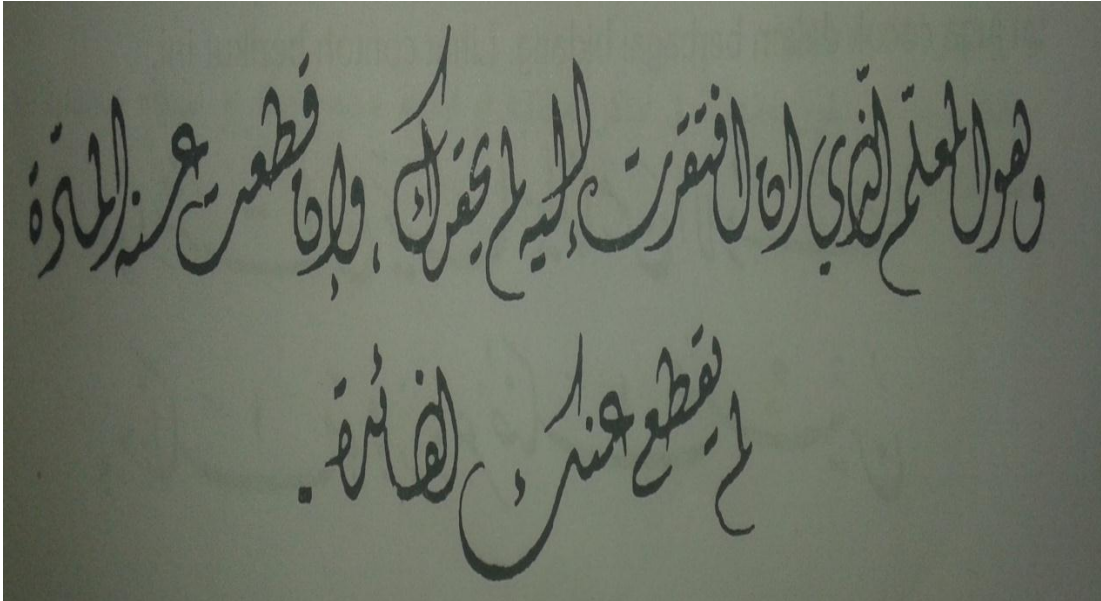 وهو المعلّم الذي ان افتقرت إليه لم يحقرك، وإن قطعت عنه المادّة
لم يقطع عنك الفائدة.